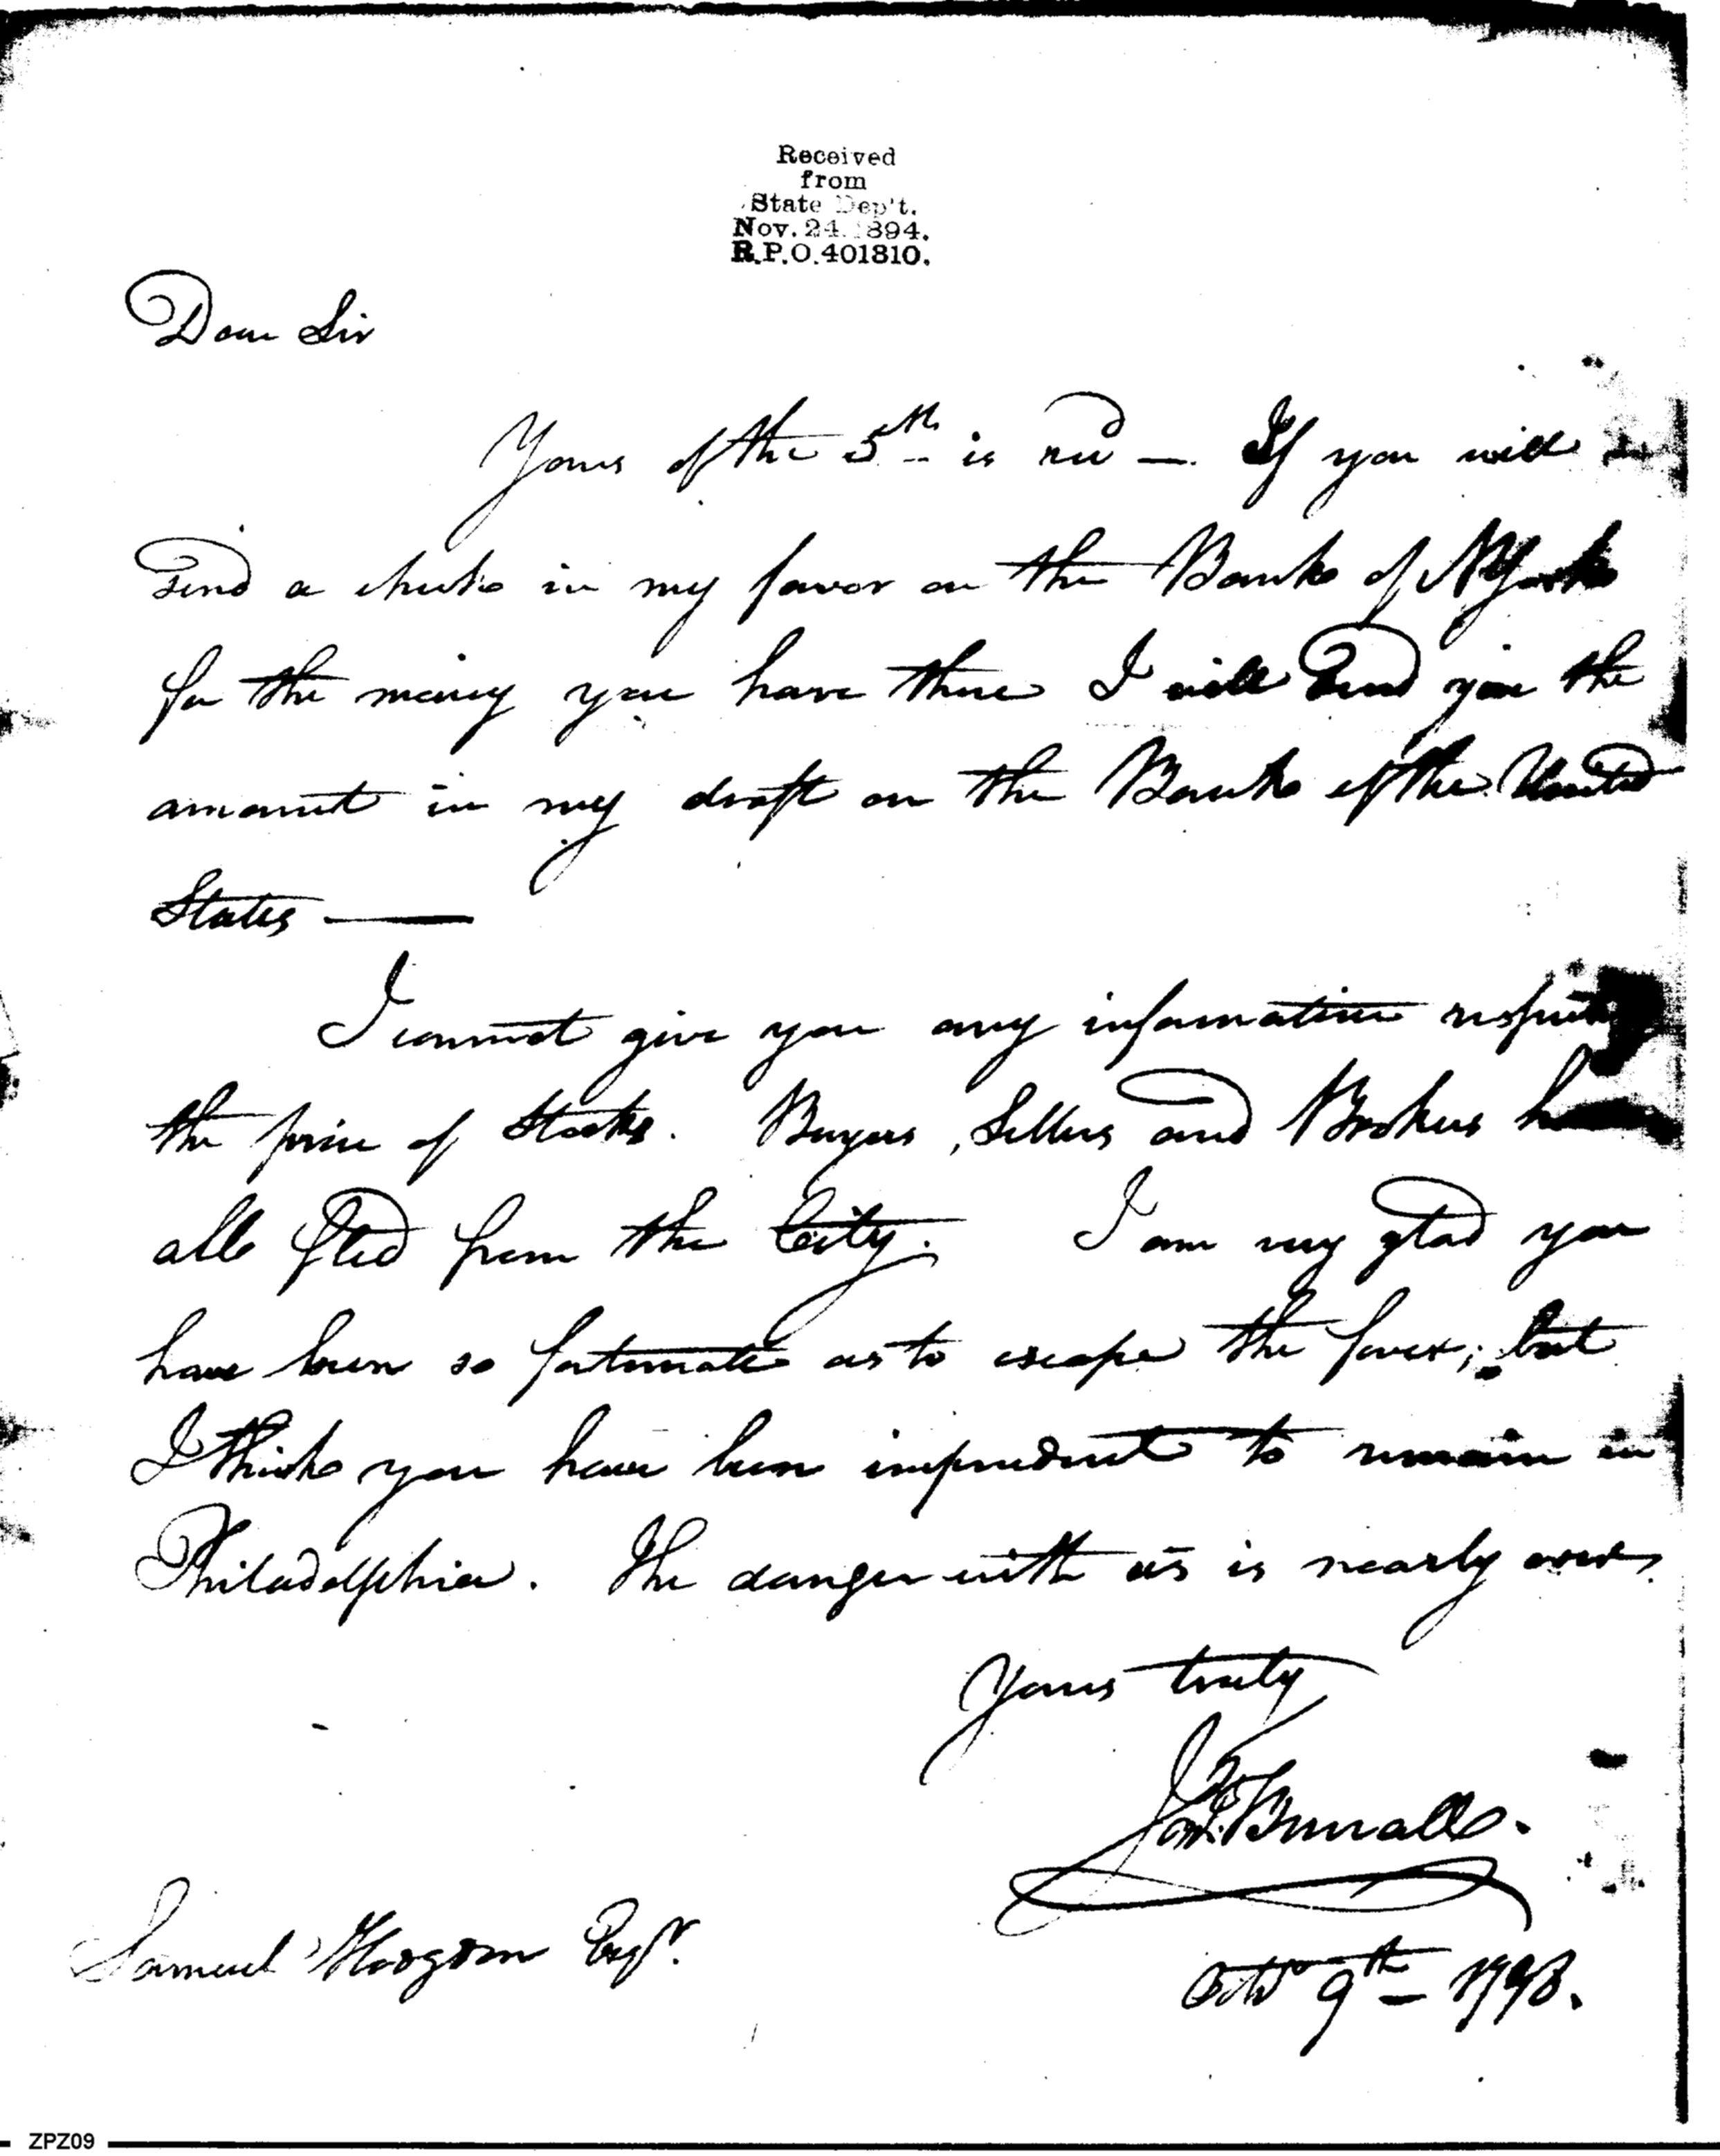 Received
from
State Dep't.
Nov. 24. 1894.
R.P.O. 401810.
Dear Sir
Yours of the 5th is recd —. If you will
send a check in my favor on the Bank of NYork
for the money you have there I will send you the
amount in my draft on the Bank of the United
States —
I cannot give you any information
the price of Stocks. Buyers, Sellers and Brokers
all fled from the City. I am very glad you
have been so fortunate as to escape the fever; but
I think you have been imprudent to remain in
Philadelphia. The danger with us is nearly over.
Yours truly
Jon. Burrall.
Samuel Hodgdon Esqr.
Octr 9th — 1798.
ZPZ09